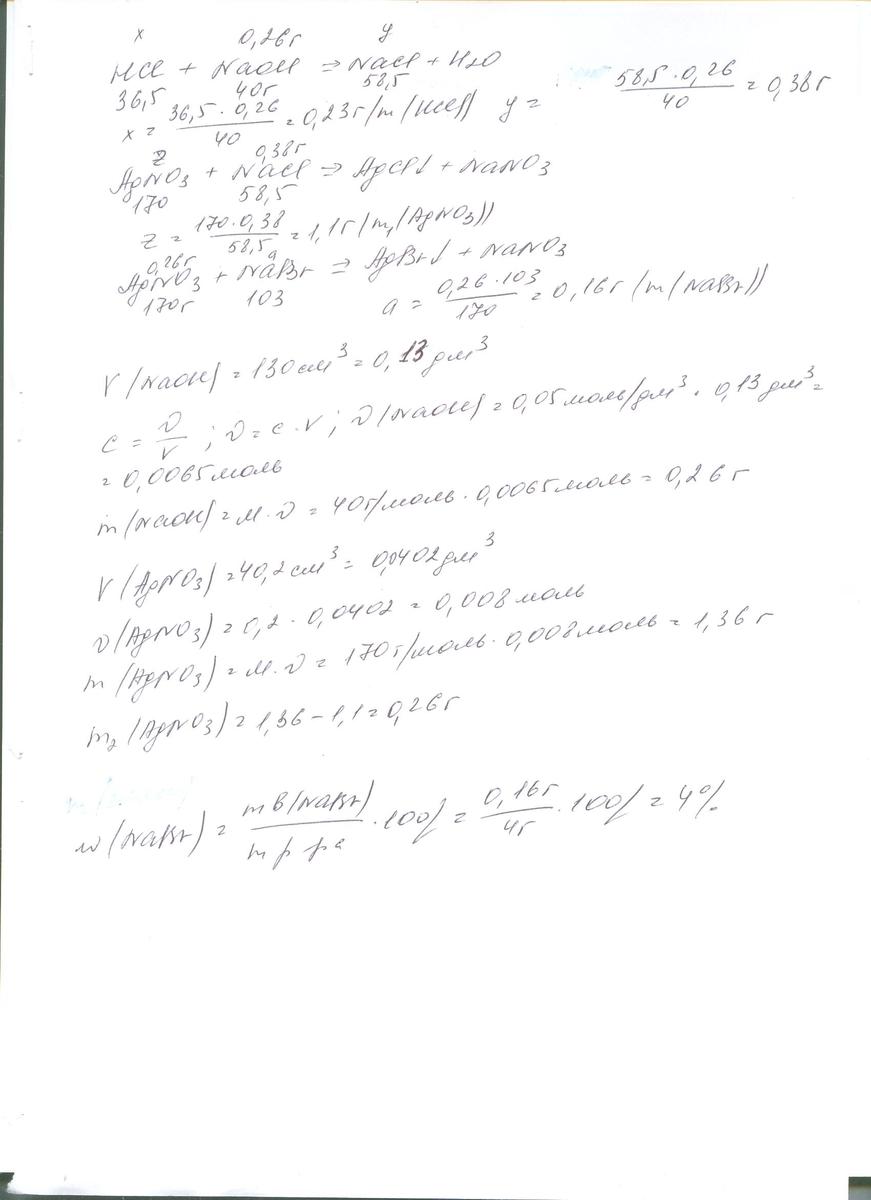 x 0,26г y
HCl + NaOH => NaCl + H2O
36,5 40г 58,5
x = 36,5 · 0,26 / 40 = 0,23г (m (HCl)) y = 58,5 · 0,26 / 40 = 0,38г
z 0,38г
AgNO3 + NaCl => AgCl↓ + NaNO3
170 58,5
z = 170 · 0,38 / 58,5 = 1,1г (m1 (AgNO3))
0,26г a
AgNO3 + NaBr => AgBr↓ + NaNO3
170г 103 a = 0,26 · 103 / 170 = 0,16г (m (NaBr))
V (NaOH) = 130 см³ = 0,13 дм³
c = ν / V ; ν = c · V ; ν (NaOH) = 0,05 моль/дм³ · 0,13 дм³ =
= 0,0065 моль
m (NaOH) = M · ν = 40г/моль · 0,0065 моль = 0,26 г
V (AgNO3) = 40,2 см³ = 0,0402 дм³
ν (AgNO3) = 0,2 · 0,0402 = 0,008 моль
m (AgNO3) = M · ν = 170 г/моль · 0,008 моль = 1,36 г
m2 (AgNO3) = 1,36 - 1,1 = 0,26г
w (NaBr) = m в (NaBr) / m р ра · 100% = 0,16г / 4г · 100% = 4%